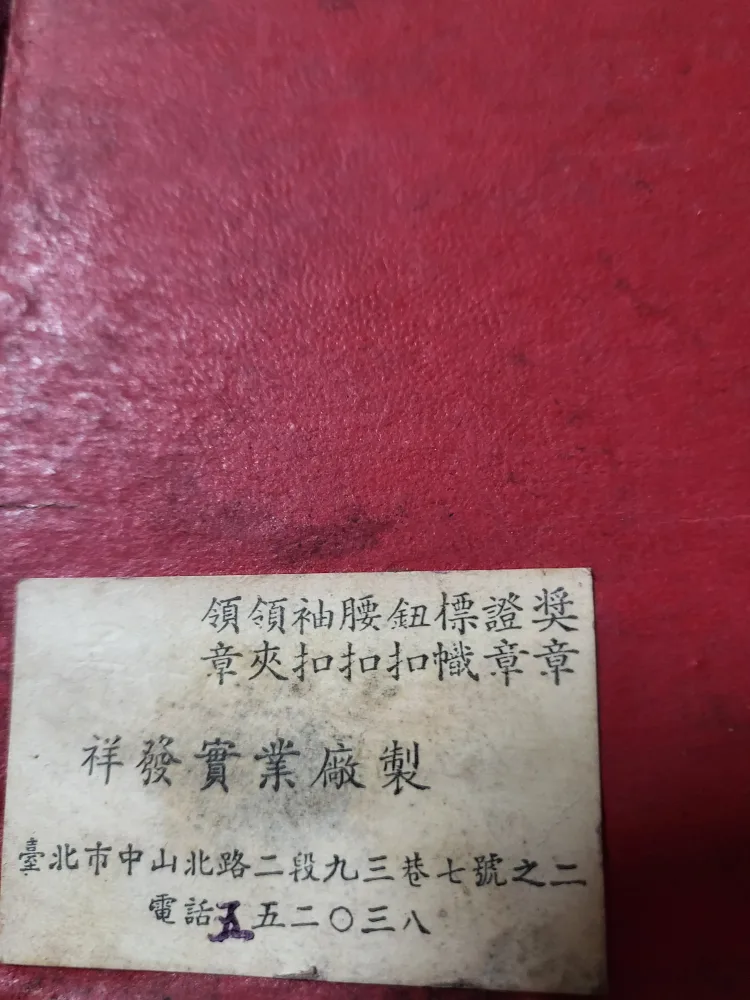 奬章
證章
標幟
鈕扣
腰扣
袖扣
領夾
領章
祥發實業廠製
臺北市中山北路二段九三巷七號之二
電話五五二〇三八